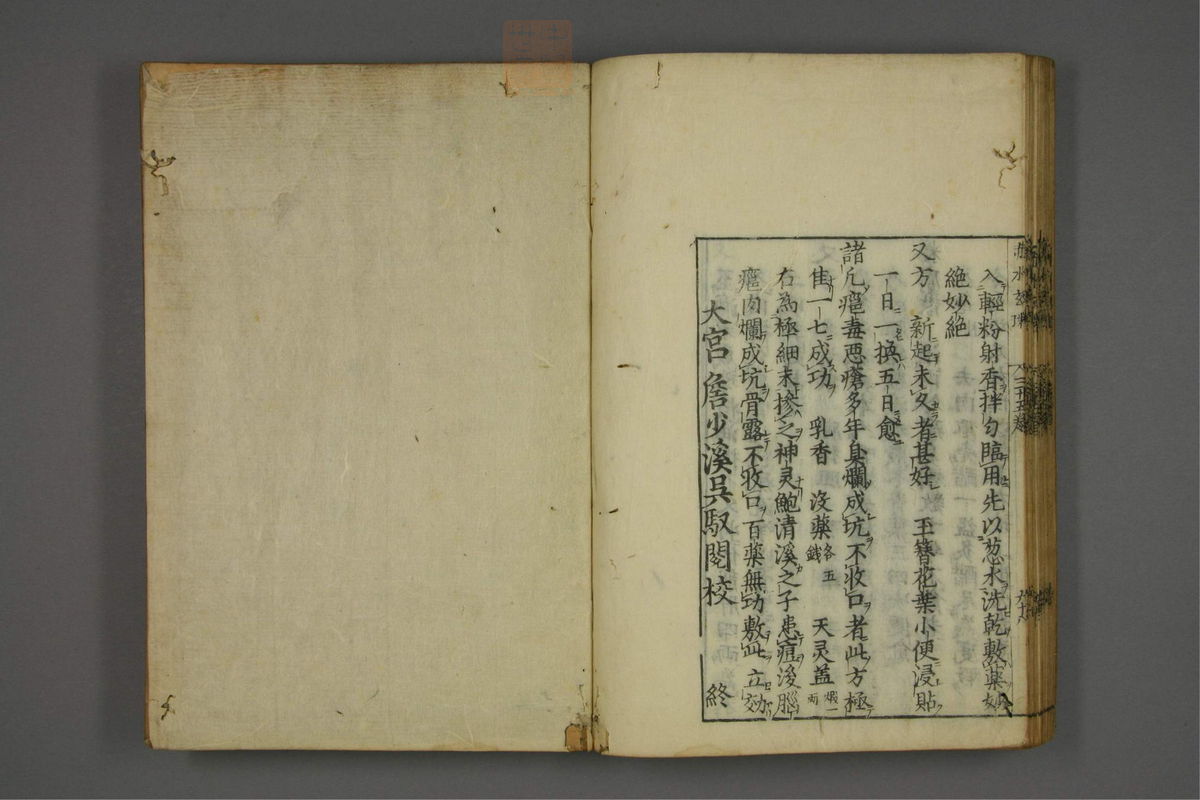 入輕粉射香拌匀臨用先以葱水洗乾敷藥妙
絶妙絶
又方　新起未久者甚好　玉簪花葉小便浸貼
一日一換五日愈
諸凡瘟毒惡瘡多年臭爛成坑不收口者此方極
佳一七成功　乳香　没藥各五錢　天灵盖煅一兩
右為極細末摻之神灵鮑清溪之子患痘後腦
瘟肉爛成坑骨露不收口百藥無功敷此立効
大宮詹少溪吳馭閱校　終